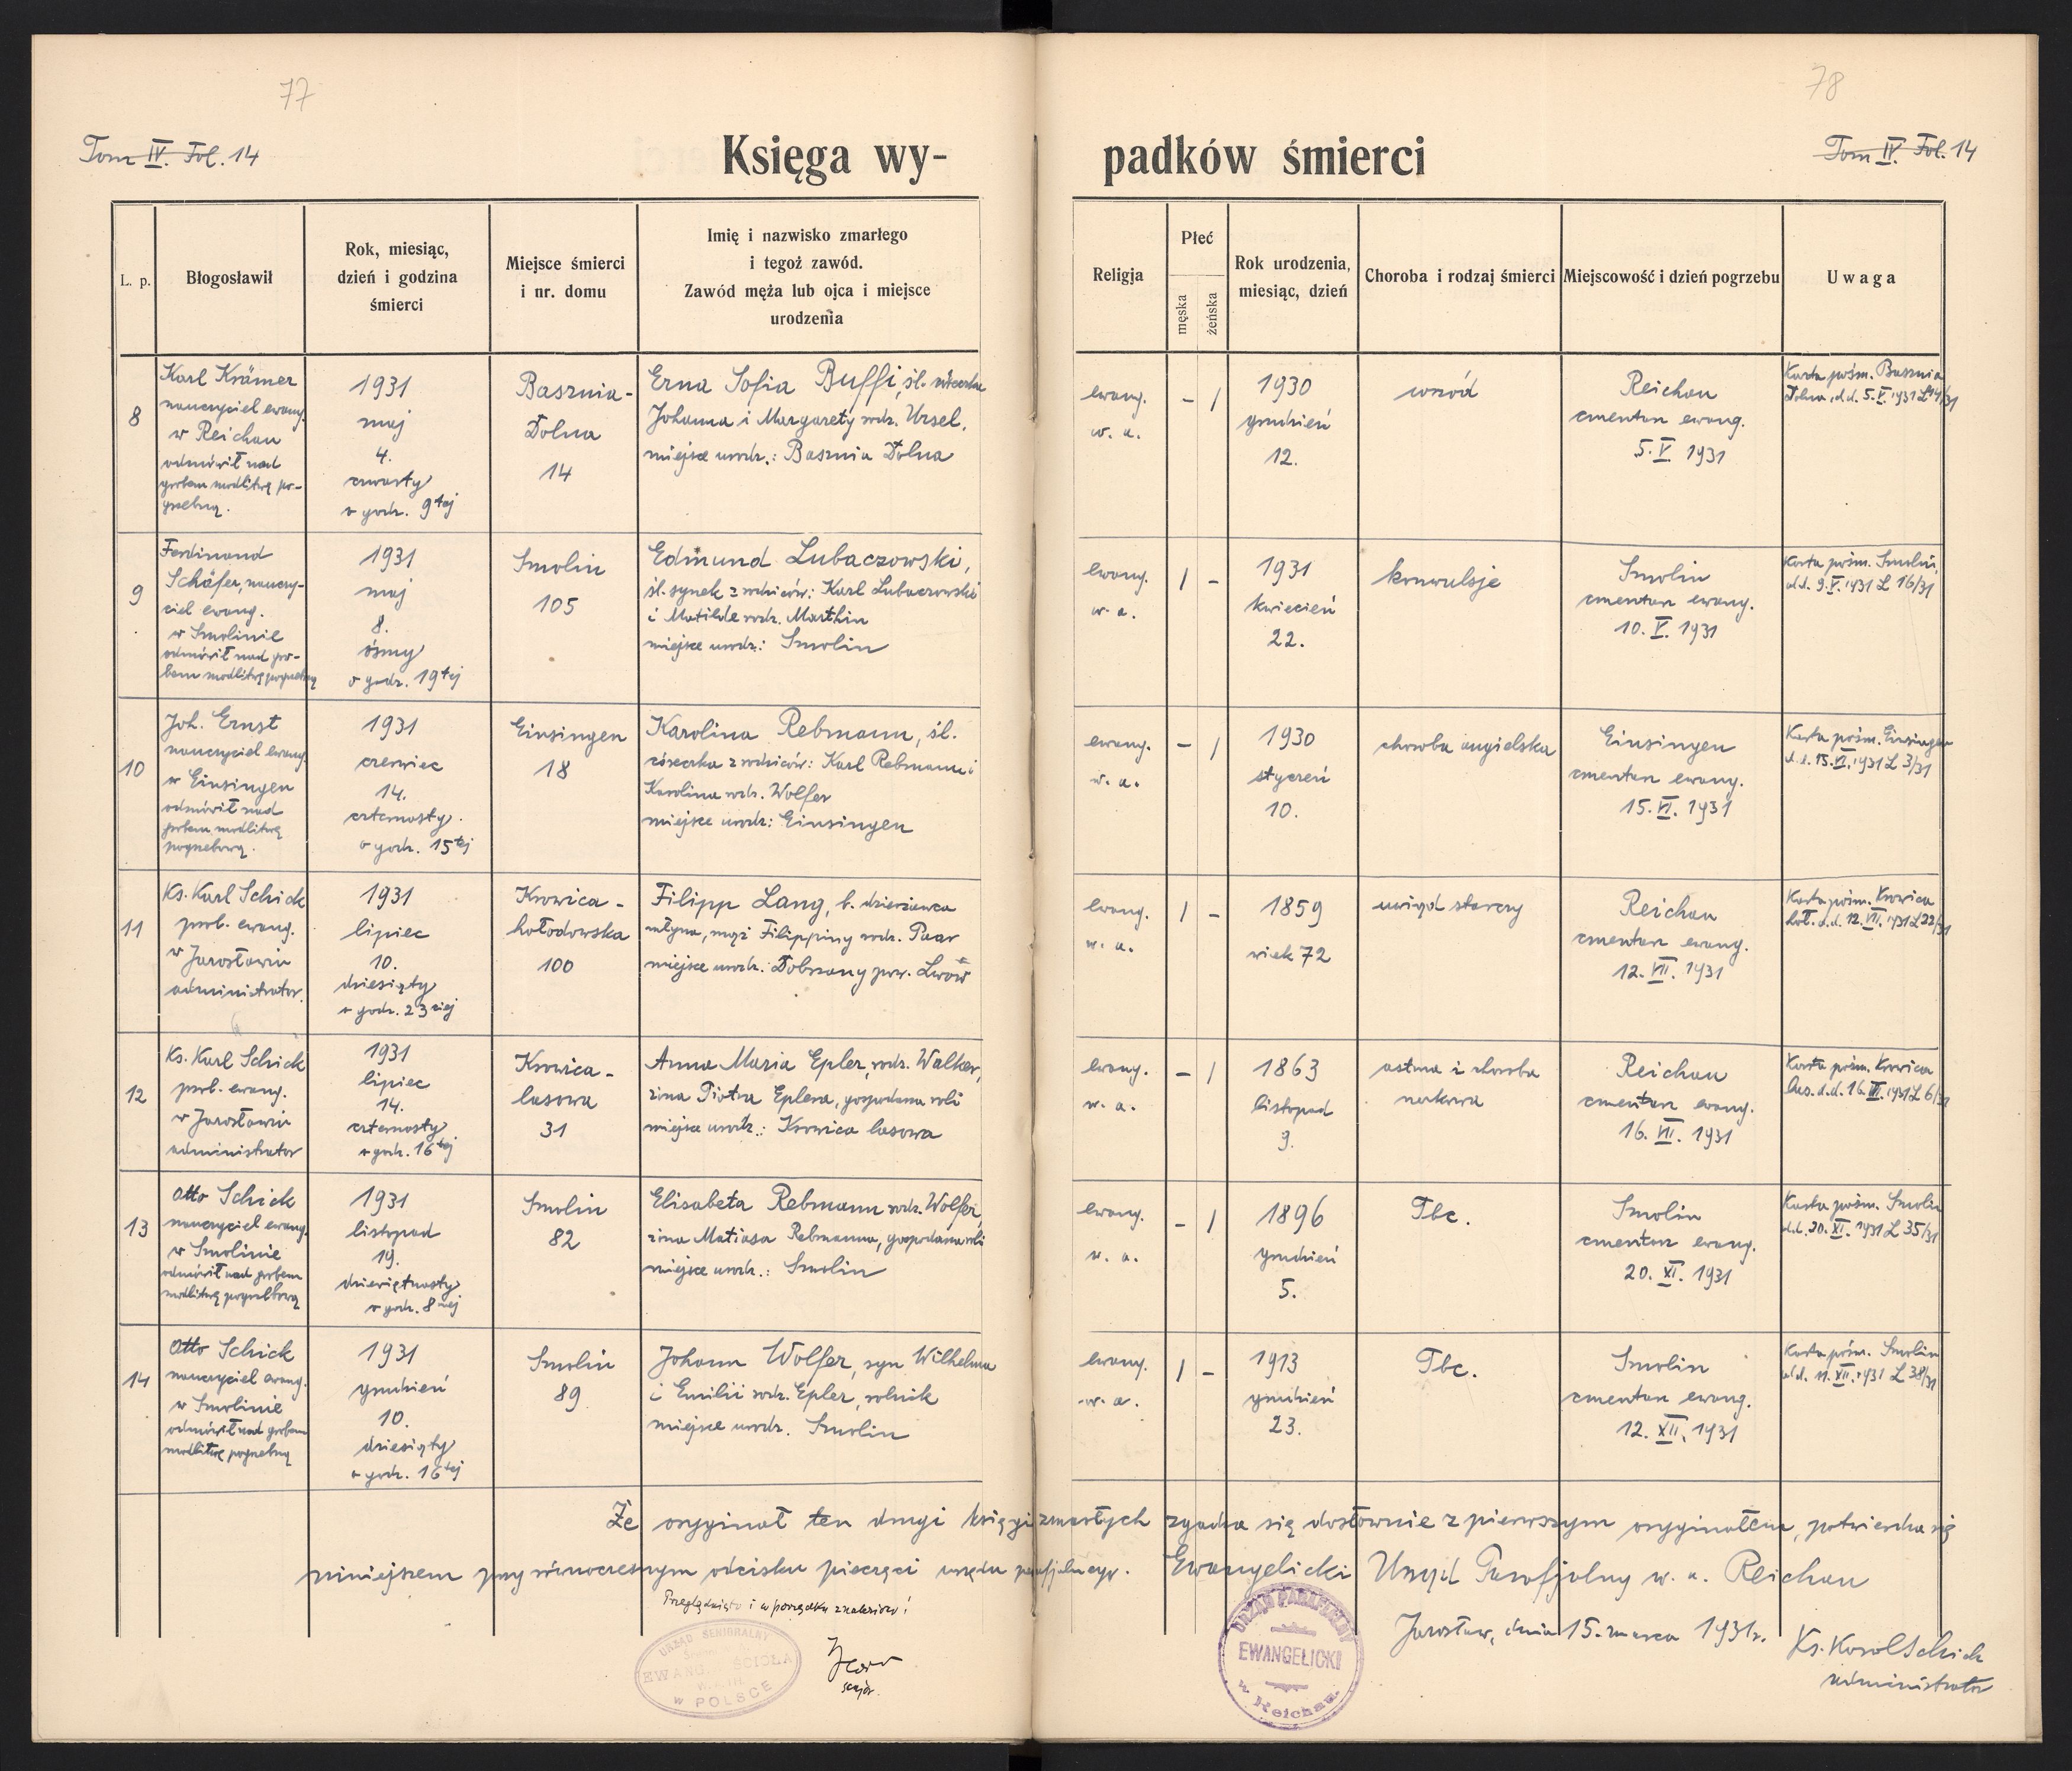 77
78
Tom IV. Fol. 14
Tom IV. Fol. 14
Księga wy-
padków śmierci
L. p.
Błogosławił
Rok, miesiąc,
dzień i godzina
śmierci
Miejsce śmierci
i nr. domu
Imię i nazwisko zmarłego
i tegoż zawód.
Zawód męża lub ojca i miejsce
urodzenia
Religja
Płeć
męska
żeńska
Rok urodzenia,
miesiąc, dzień
Choroba i rodzaj śmierci
Miejscowość i dzień pogrzebu
Uwaga
8
Karl Krämer
nauczyciel ewang.
w Reichau
odmówił nad
grobem modlitwę po-
grzebną.
1931
maj
4.
czwarty
o godz. 9tej
Basznia-
Dolna
14
Erna Sofia Buffi, śl. córeczka
Johanna i Margarety rodz. Ursel,
miejsce urodz.: Basznia Dolna
ewang.
w. a.
- 1
1930
grudzień
12.
wrzód
Reichau
cmentarz ewang.
5. V. 1931
Karta pośm. Basznia
Dolna, d.d. 5. V. 1931 L 14/31
9
Ferdinand
Schäfer, nauczy-
ciel ewang.
w Smolinie
odmówił nad gro-
bem modlitwę pogrzebną
1931
maj
8.
ósmy
o godz. 19tej
Smolin
105
Edmund Lubaczowski,
śl. synek z rodziców: Karl Lubaczowski
i Matilde rodz. Marthin
miejsce urodz.: Smolin
ewang.
w. a.
1 -
1931
kwiecień
22.
konwulsje
Smolin
cmentarz ewang.
10. V. 1931
Karta pośm. Smolin,
d.d. 9. V. 1931 L 16/31
10
Joh. Ernst
nauczyciel ewang.
w Einsingen
odmówił nad
grobem modlitwę
pogrzebową.
1931
czerwiec
14.
czternasty.
o godz. 15tej
Einsingen
18
Karolina Rebmann, śl.
córeczka z rodziców: Karl Rebmann i
Karolina rodz. Wolfer
miejsce urodz: Einsingen
ewang.
w. a.
- 1
1930
styczeń
10.
choroba angielska
Einsingen
cmentarz ewang.
15. VI. 1931
Karta pośm. Einsingen
d.d. 15. VI. 1931 L 3/31
11
Ks. Karl Schick
prob. ewang.
w Jarosławiu
administrator.
1931
lipiec
10.
dziesiąty
o godz. 23ciej
Krowica-
hołodowska
100
Filipp Lang, b. dzierżawca
młyna, mąż Filippiny rodz. Paar
miejsce urodz.: Dobrzany pow. Lwów
ewang.
w. a.
1 -
1859
wiek 72
uwiąd starczy
Reichau
cmentarz ewang.
12. VII. 1931
Karta pośm. Krowica
hoł. d.d. 12. VII. 1931 L 22/31
12
Ks. Karl Schick
prob. ewang.
w Jarosławiu
administrator
1931
lipiec
14.
czternasty
o godz. 16tej
Krowica-
lasowa
31
Anna Maria Epler, rodz. Walker,
żona Piotra Eplera, gospodarza roli
miejsce urodz.: Krowica lasowa
ewang.
w. a.
- 1
1863
listopad
9.
astma i choroba
nerkowa
Reichau
cmentarz ewang.
16. VII. 1931
Karta pośm. Krowica
las. d.d. 16. VII. 1931 L 6/31
13
Otto Schick
nauczyciel ewang.
w Smolinie
odmówił nad grobem
modlitwę pogrzebową
1931
listopad
19.
dziewiętnasty
o godz. 8mej
Smolin
82
Elisabeta Rebmann rodz. Wolfer,
żona Matiasa Rebmanna, gospodarza roli
miejsce urodz.: Smolin
ewang.
w. a.
- 1
1896
grudzień
5.
Tbc.
Smolin
cmentarz ewang.
20. XI. 1931
Karta pośm. Smolin
d.d. 20. XI. 1931 L 35/31
14
Otto Schick
nauczyciel ewang.
w Smolinie
odmówił nad grobem
modlitwę pogrzebną
1931
grudzień
10.
dziesiąty
o godz. 16tej
Smolin
89
Johann Wolfer, syn Wilhelma
i Emilii rodz. Epler, rolnik
miejsce urodz. Smolin
ewang.
w. a.
1 -
1913
grudzień
23.
Tbc.
Smolin
cmentarz ewang.
12. XII. 1931
Karta pośm. Smolin
d.d. 11. XII. 1931 L 38/31
Że oryginał ten drugi księgi zmarłych zgadza się dosłownie z pierwszym oryginałem, potwierdza się
niniejszem przy równoczesnym odcisku pieczęci urzędu parafjalnego. Ewangelicki Urząd Parafjalny w. a. Reichau
Przeglądnięto i w porządku znaleziono!
Jarosław, dnia 15. marca 1931r.
Ks. Karol Schick
administrator
senjor.
URZĄD SENIORALNY
EWANG. KOŚCIOŁA
w POLSCE
URZĄD PARAFJALNY
EWANGELICKI
w Reichau.